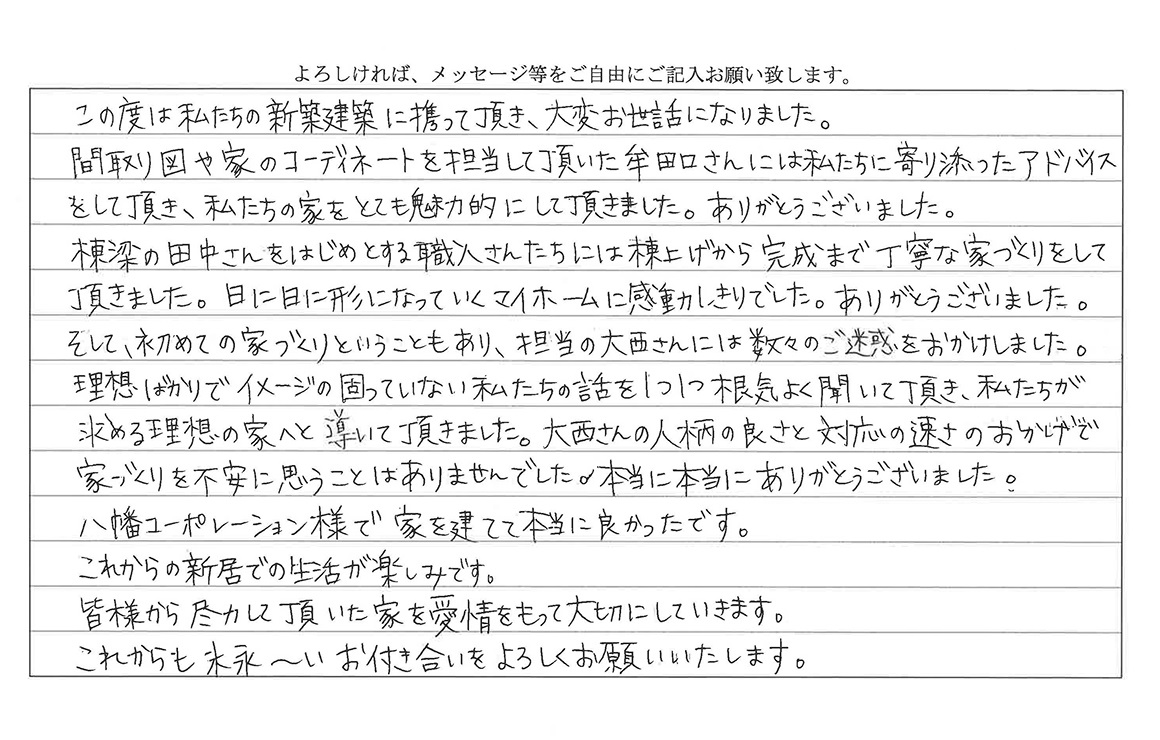 よろしければ、メッセージ等をご自由にご記入お願い致します。
この度は私たちの新築建築に携って頂き、大変お世話になりました。
間取り図や家のコーディネートを担当して頂いた牟田口さんには私たちに寄り添ったアドバイス
をして頂き、私たちの家をとても魅力的にして頂きました。ありがとうございました。
棟梁の田中さんをはじめとする職人さんたちには棟上げから完成まで丁寧な家づくりをして
頂きました。日に日に形になっていくマイホームに感動しきりでした。ありがとうございました。
そして、初めての家づくりということもあり、担当の大西さんには数々のご迷惑をおかけしました。
理想ばかりでイメージの固っていない私たちの話を1つ1つ根気よく聞いて頂き、私たちが
求める理想の家へと導いて頂きました。大西さんの人柄の良さと対応の速さのおかげで
家づくりを不安に思うことはありませんでした。本当に本当にありがとうございました。
八幡コーポレーション様で家を建てて本当に良かったです。
これからの新居での生活が楽しみです。
皆様から尽力して頂いた家を愛情をもって大切にしていきます。
これからも末永〜いお付き合いをよろしくお願いいたします。